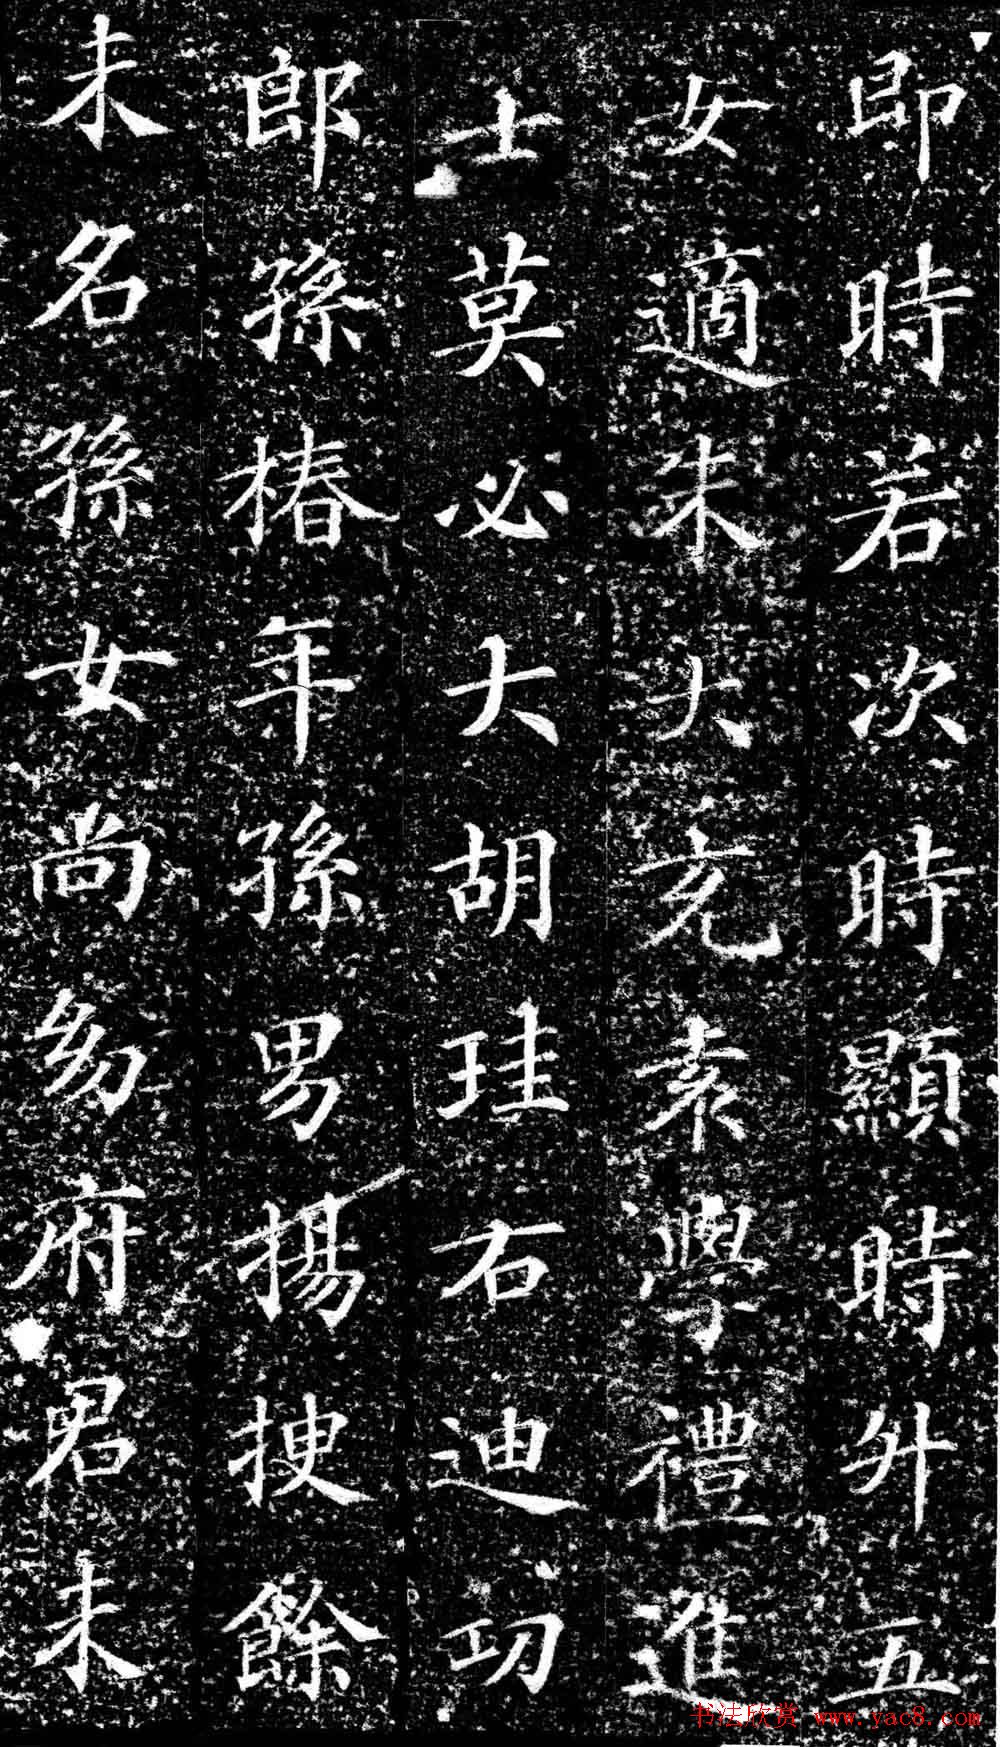 即時若次時顯時升五
女適朱大充素學禮進
士莫必大胡珪右迪功
郎孫椿年孫男揚揀餘
未名孫女尚幼府君未
书法欣赏 www.yac8.com